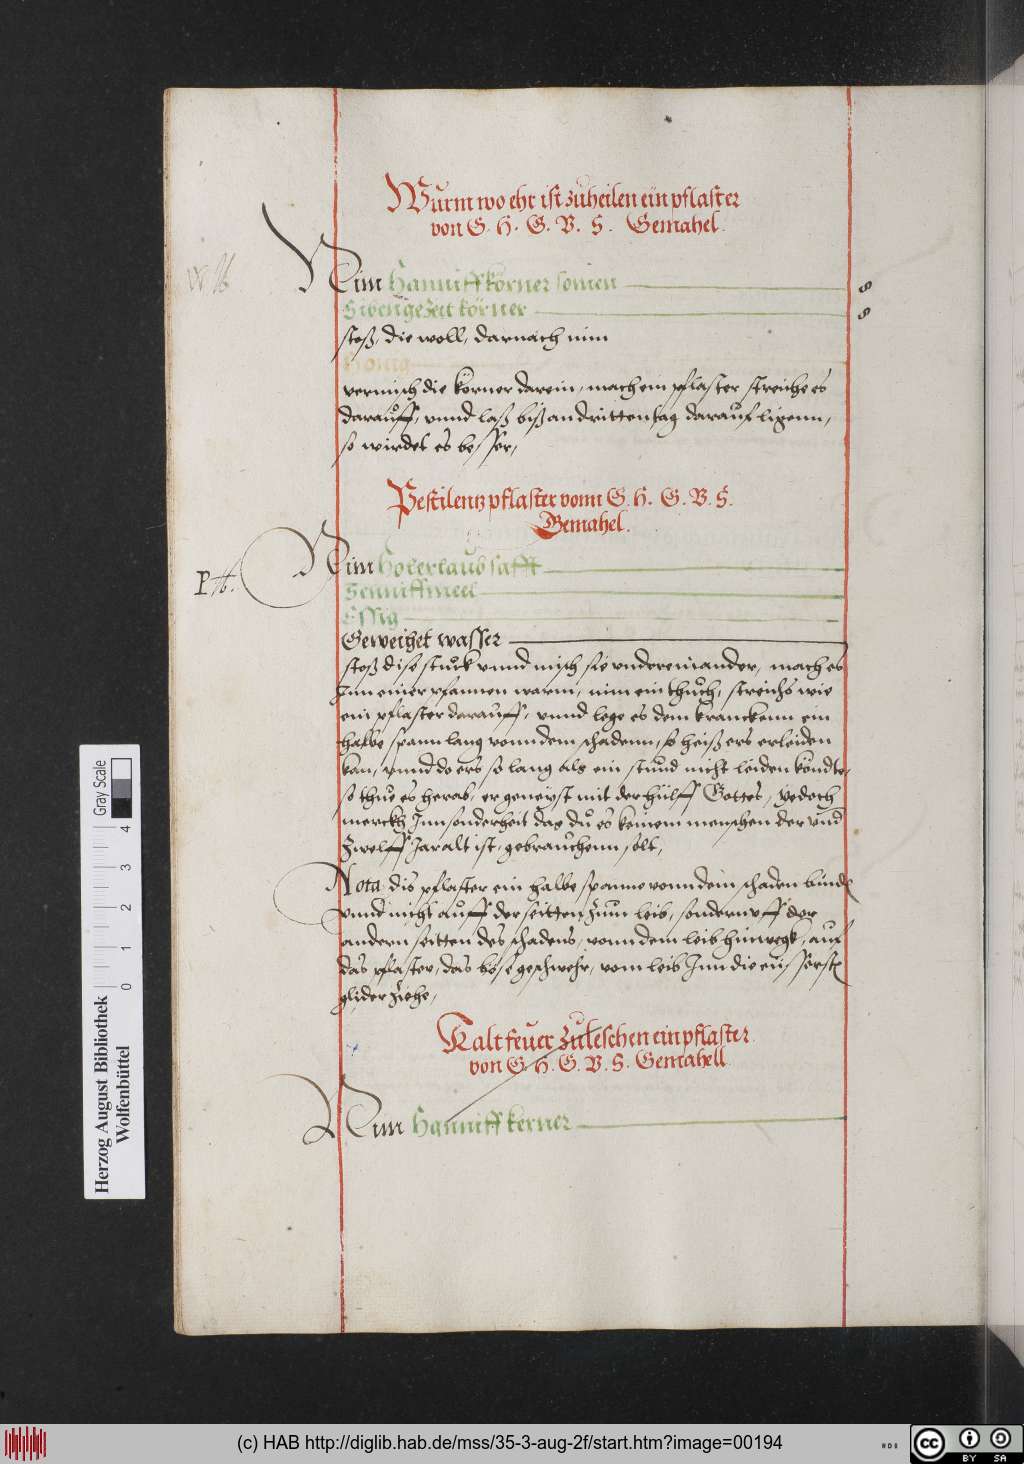 Wurm wo ehr ist zuheilen ein pflaster
von G. H. G. V. S. Gemahel.
Nim Hanniffkörner somen
Sibengezeit körner
stoß, die woll, darnach nim
Honig
vermisch die körner darein, mach ein pflaster streiche es
darauff, vnnd laß biß an dritten tag darauf ligenn,
so wirdet es besser,
Pestilentz pflaster vonn G. H. G. V. S.
Gemahel.
Nim Holerlaub safft
Senniffmeel
Essig
Geweihet wasser
stoß dise stuck vnnd misch sie vndereinander, mach es
Inn einer pfannen warm, nim ein thuch, streichs wie
ein pflaster darauff, vnnd lege es dem kranckenn ein
halbe spann lang vonn dem schadenn, so heiß ers erleiden
kan, vnnd do ers so lang als ein stund nicht leiden köndte,
so thue es herab, er geneyst mit der hülff Gottes, Yedoch
merckh Inn sonderheit das du es keinem menschen der vnd
zwelff Jar alt ist, gebrauchenn solt,
Nota dis pflaster ein halbe spanne vonn dem schaden bind
vnnd nicht auff der seitten zum leib, sondern vff der
andern seitten des schadens, vonn dem leib hinwegk, auf
das pflaster, das böse geschwehr, vom leib Inn die eüssersten
glider ziehe,
Kalt feuer zuleschen ein pflaster
von G. H. G. V. S. Gemahell.
Nim Hanniff kerner
Herzog August Bibliothek
Wolfenbüttel
Gray Scale
0 1 2 3 4
(c) HAB http://diglib.hab.de/mss/35-3-aug-2f/start.htm?image=00194
cc BY SA